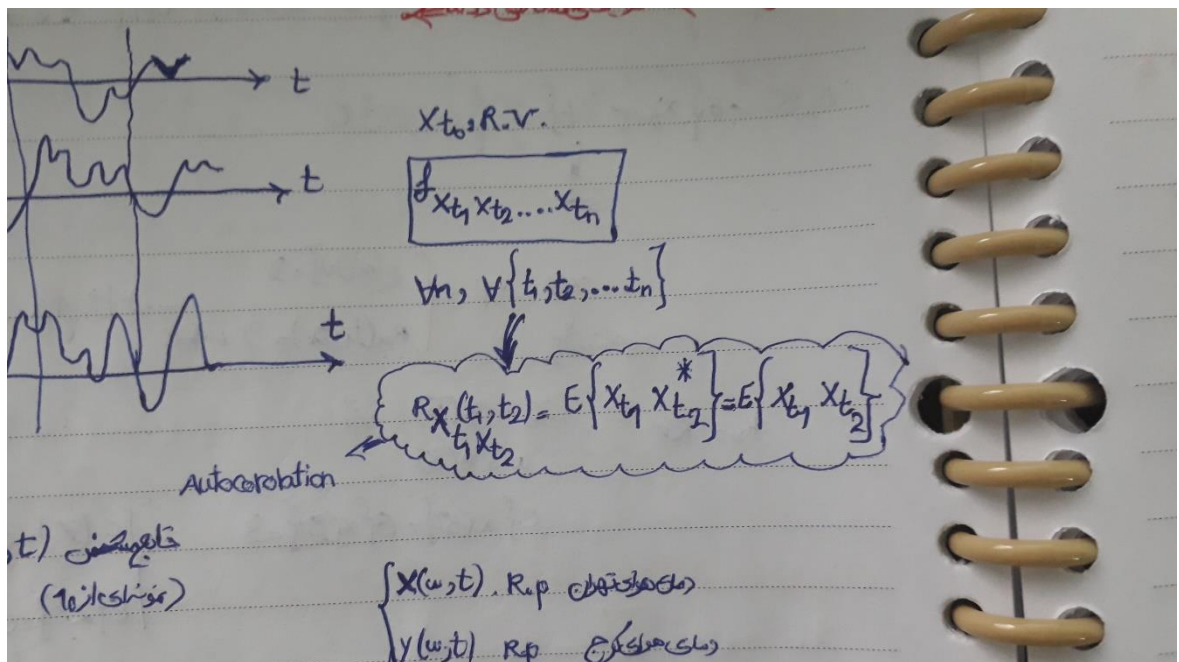 t
X_{t_0}: R.V.
t
f_{X_{t_1} X_{t_2} .... X_{t_n}}
∀n, ∀{t_1, t_2, ... t_n}
t
R_{X_{t_1} X_{t_2}}(t_1, t_2) = E{X_{t_1} X*_{t_2}} = E{X_{t_1} X_{t_2}}
Autocorolation
, t)
X(ω, t). R.p دمای هوای تهران
y(ω, t) R.p دمای هوای کرج